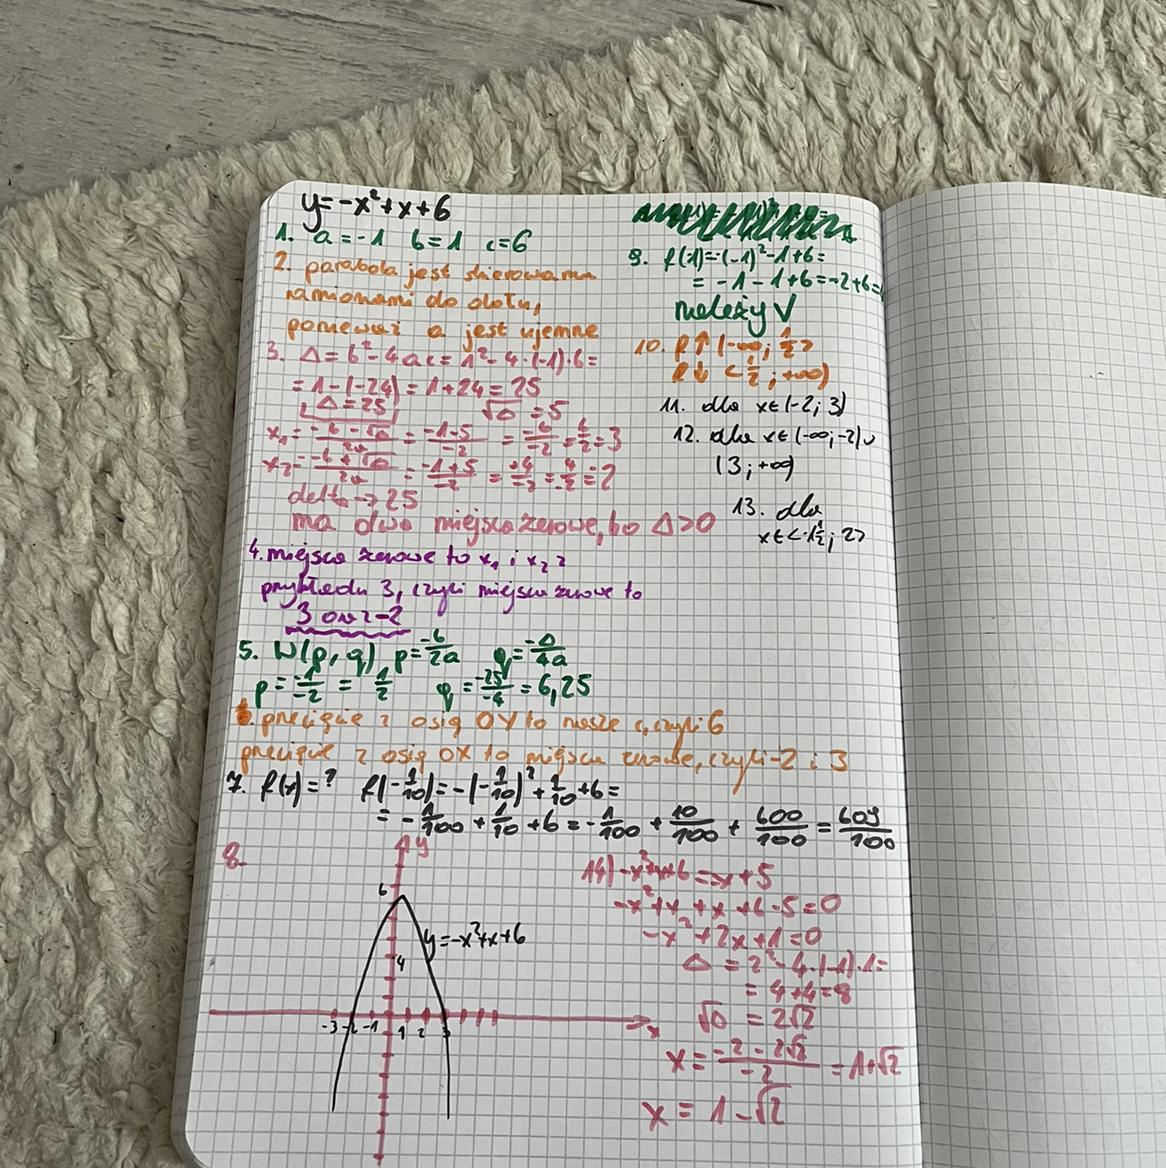 y=-x²+x+6
1. a=-1 b=1 c=6
2. parabola jest skierowana
ramionami do dołu,
ponieważ a jest ujemne
3. Δ=b²-4ac=1²-4·(-1)·6=
=1-(-24)=1+24=25
Δ=25 √Δ=5
x₁=(-b-√Δ)/2a=(-1-5)/-2=-6/-2=6/2=3
x₂=(-b+√Δ)/2a=(-1+5)/-2=+4/-2=4/-2=-2
delta→25
ma dwa miejsca zerowe, bo Δ>0
4. miejsca zerowe to x₁ i x₂ z
przykładu 3, czyli miejsca zerowe to
3 oraz -2
5. W(p,q), p=-b/2a q=-Δ/4a
p=-1/-2=1/2 q=-25/-4=6,25
6. przecięcie z osią OY to nasze c, czyli 6
przecięcie z osią OX to miejsca zerowe, czyli -2 i 3
7. f(x)=? f(-1/10)=-(-1/10)²+1/10+6=
=-1/100+1/10+6=-1/100+10/100+600/100=609/100
8.
y
6
y=-x²+x+6
4
-3 -2 -1 1 2 3 x
9. f(1)=-(-1)²-1+6=
=-1-1+6=-2+6=
należy V
10. f↑(-∞; 1/2>
f↓<1/2; +∞)
11. dla x∈(-2; 3)
12. dla x∈(-∞;-2)∪
(3;+∞)
13. dla
x∈<-1 1/2; 2>
14) -x²+x+6=x+5
-x²+x+x+6-5=0
-x²+2x+1=0
Δ=2²-4·(-1)·1=
=4+4=8
√Δ=2√2
x=(-2-2√2)/-2=1+√2
x=1-√2